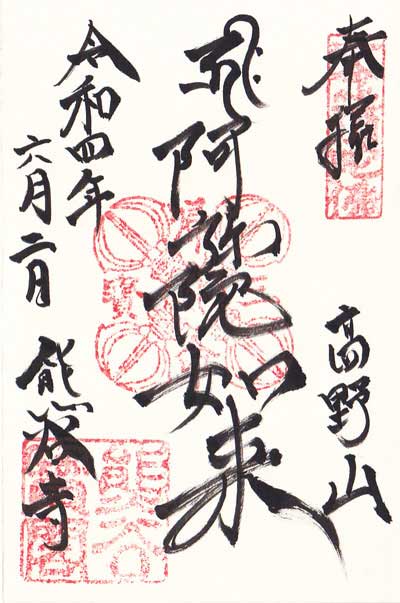 奉拝
高野山
阿弥陀如来
令和四年
六月二日
熊谷寺